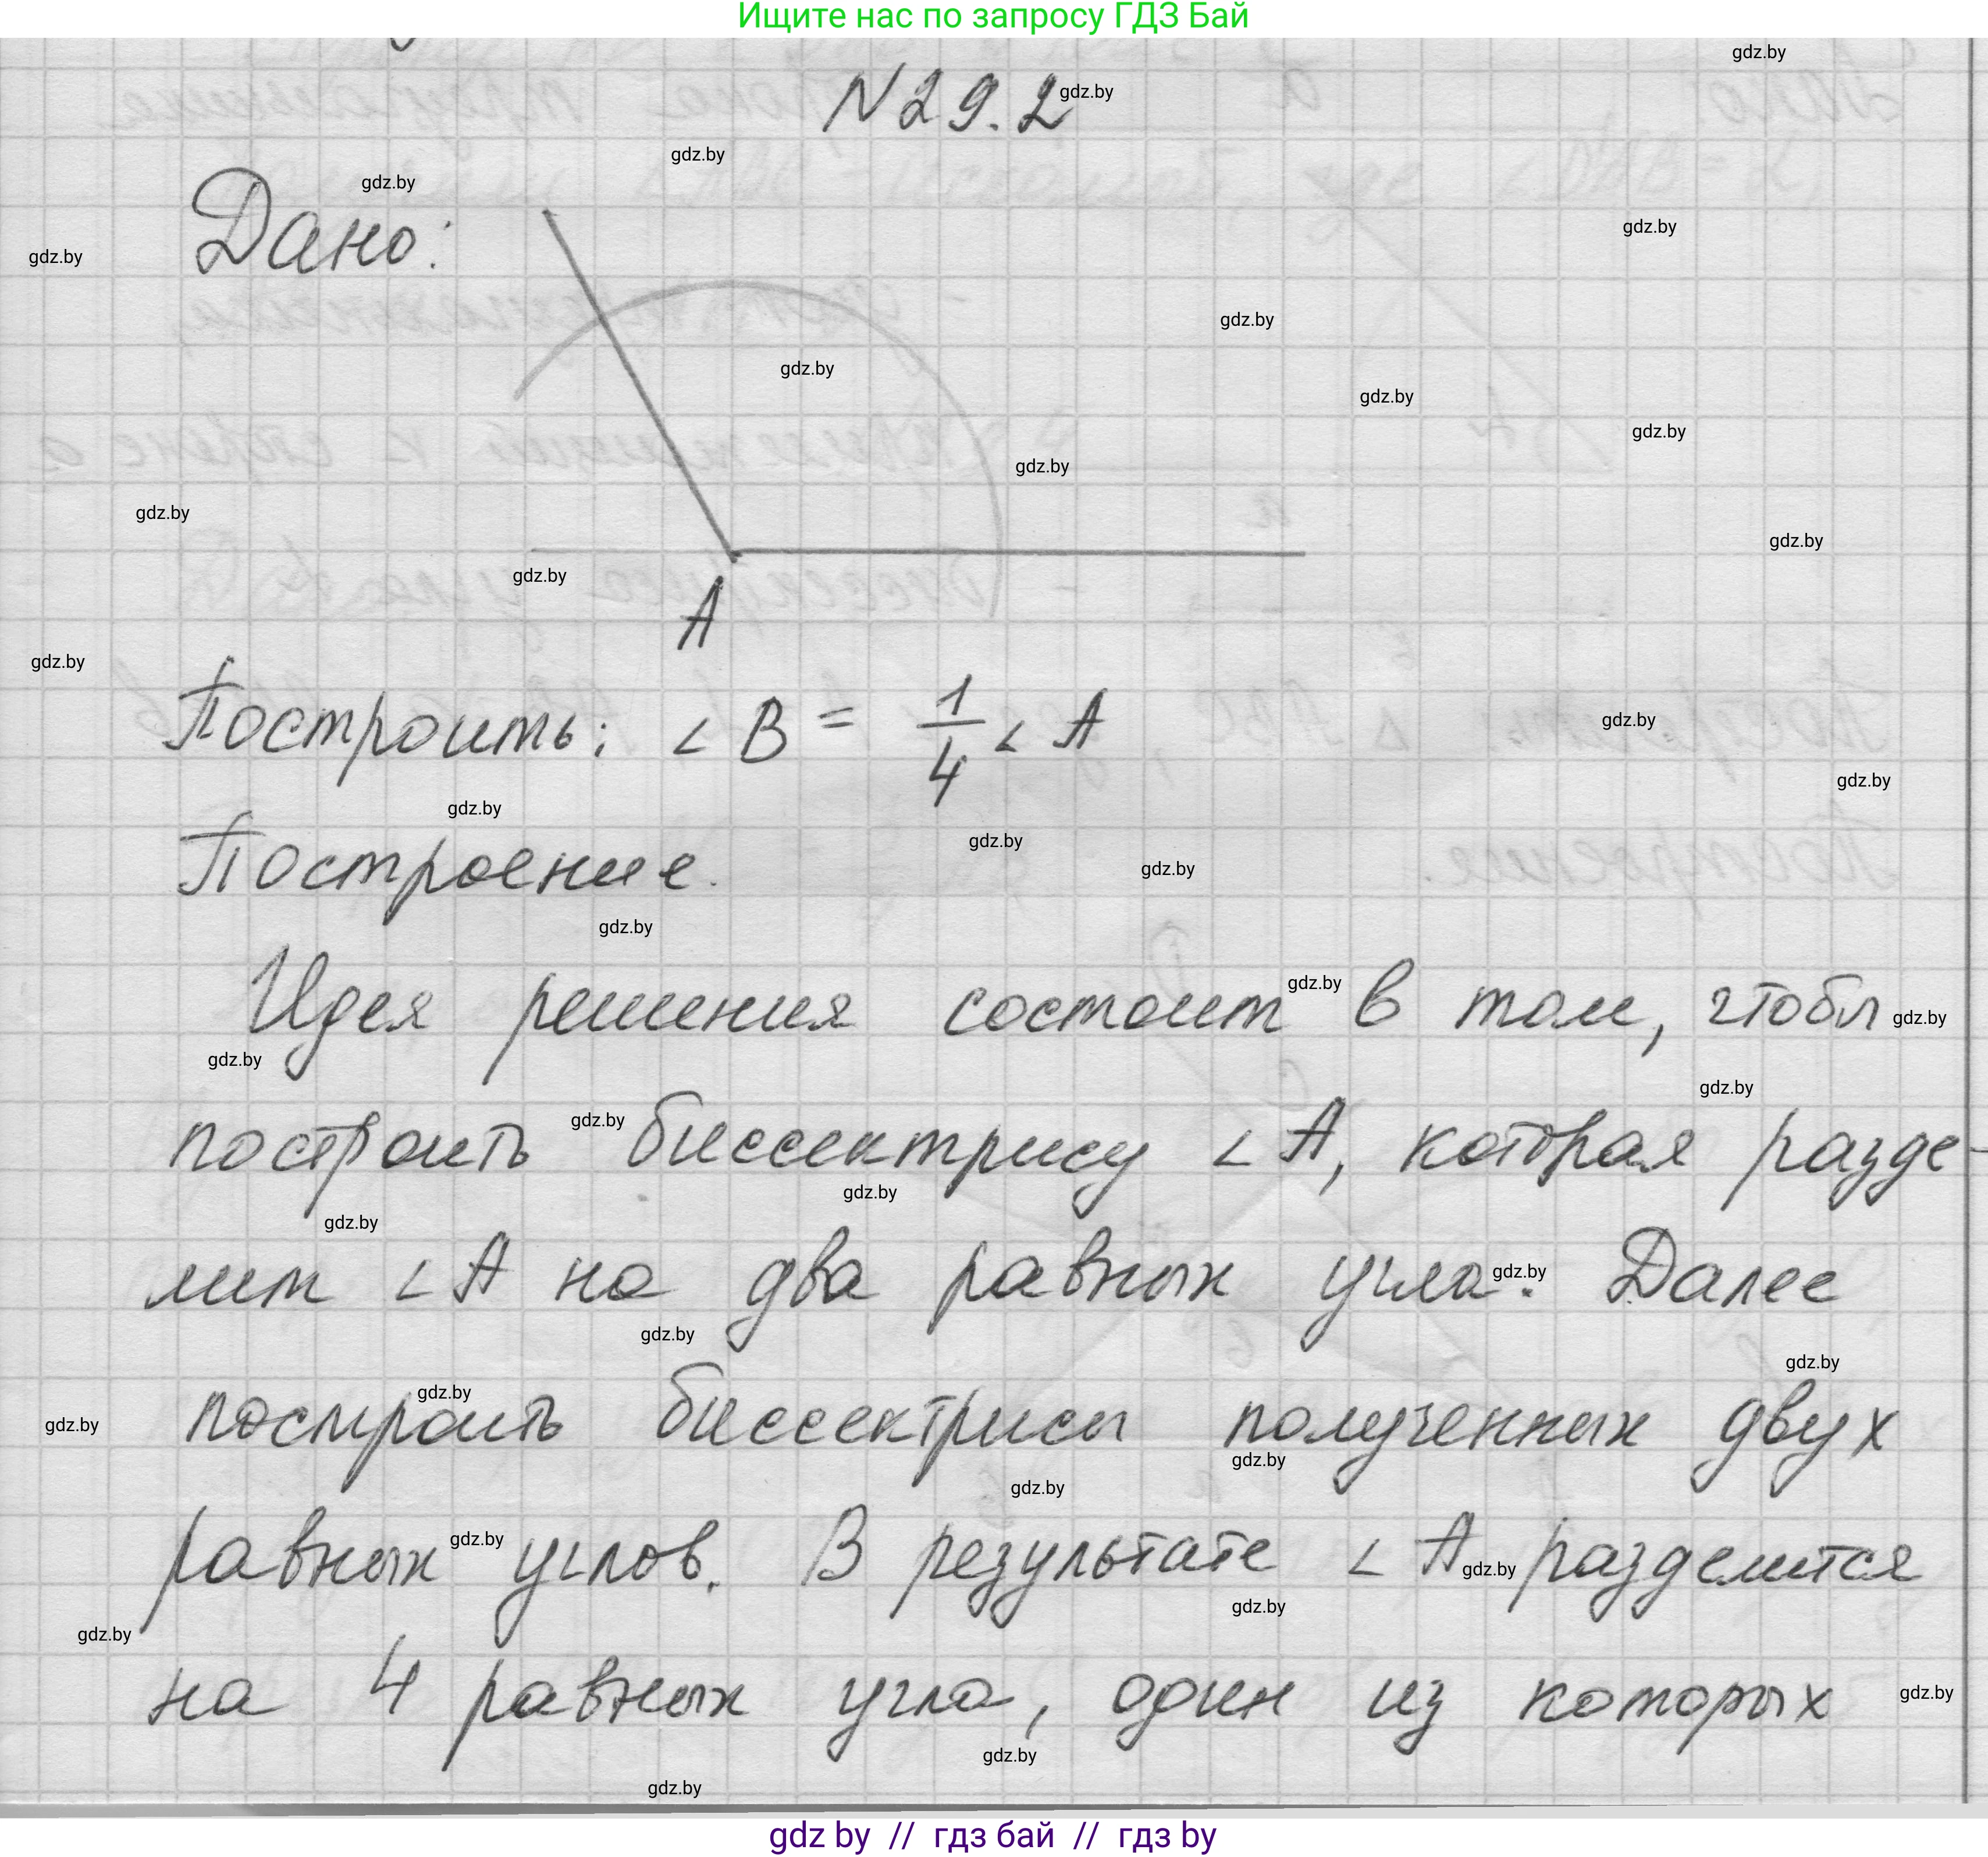 Ищите нас по запросу ГДЗ Бай
N 29.2
Дано:
A
Построить: ∠ B = 1/4 ∠ A
Построение.
Идея решения состоит в том, чтобы
построить биссектрису ∠ A, которая разде-
лит ∠ A на два равных угла. Далее
построить биссектрисы полученных двух
равных углов. В результате ∠ A разделится
на 4 равных угла, один из которых
gdz by // гдз бай // гдз by